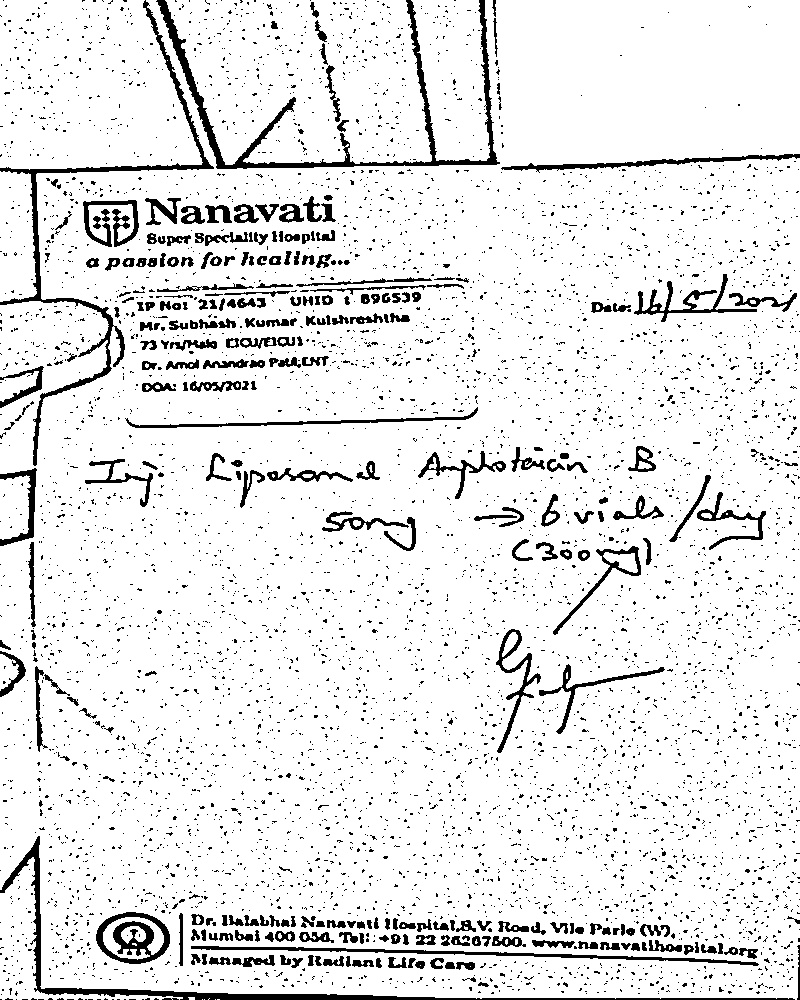 Nanavati
Super Speciality Hospital
a passion for healing...
IP No: 21/4643 UHID : 896539
Date: 16/5/2021
Mr. Subhash Kumar Kulshreshtha
73 Yrs/Male EICU/EICU1
Dr. Amol Anandrao Patil,ENT
DOA: 16/05/2021
Inj. Liposomal Amphotericin B
50mg → 6 vials /day
(300mg)
Dr. Balabhai Nanavati Hospital,S.V. Road, Vile Parle (W),
Mumbai 400 056. Tel: +91 22 26267500. www.nanavatihospital.org
Managed by Radiant Life Care